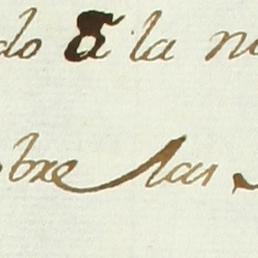 do a la n
bre las